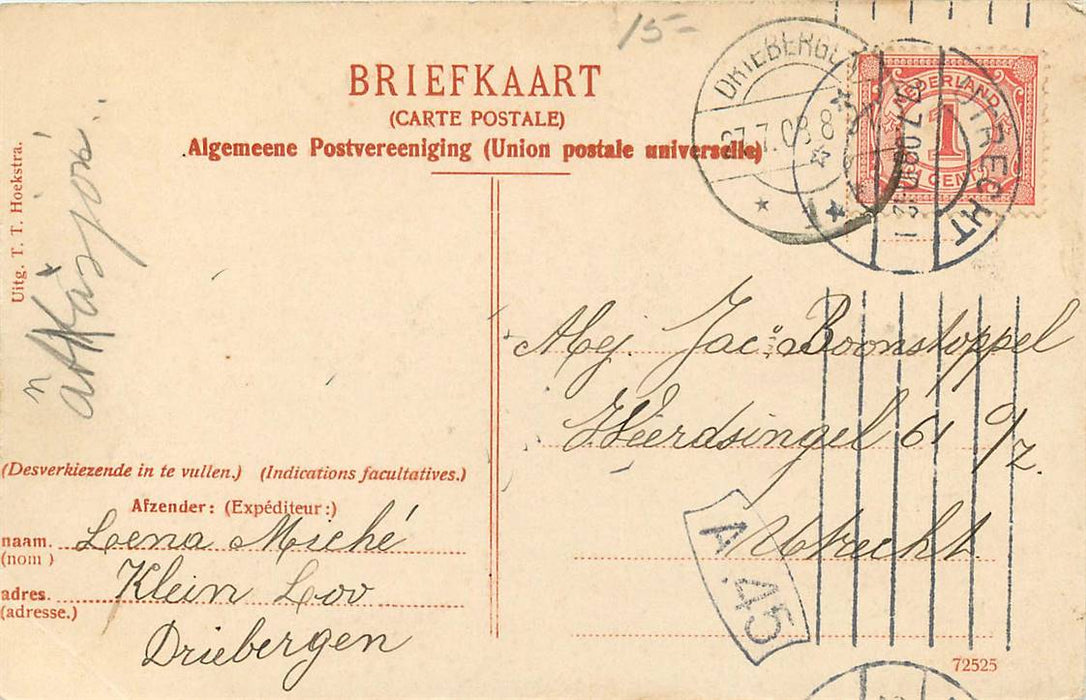 15-
BRIEFKAART
(CARTE POSTALE)
Algemeene Postvereeniging (Union postale universelle)
DRIEBERGEN
27.7.08.8
NEDERLAND
1
CENT
UTRECHT
Uitg. T. T. Hoekstra.
Mej. Jac. Boonstoppel
Weerdsingel 61 O/Z.
Utrecht
A 45
(Desverkiezende in te vullen.) (Indications facultatives.)
Afzender: (Expéditeur:)
naam. Lena Miché
(nom )
adres. Klein Loo
(adresse.)
Driebergen
72525